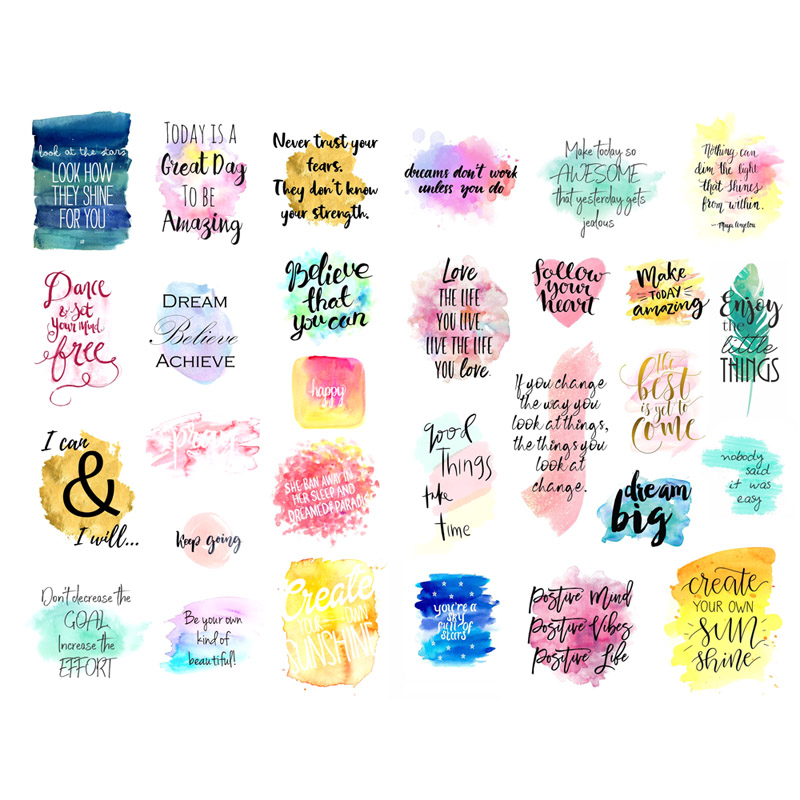 look at the stars
LOOK HOW
THEY SHINE
FOR YOU
TODAY IS A
Great Day
TO BE
Amazing
Never trust your
fears.
They don't know
your strength.
dreams don't work
unless you do
Make today so
AWESOME
that yesterday gets
jealous
Nothing can
dim the light
that shines
from within.
—Maya Angelou
Dance
& set
your mind
free
DREAM
Believe
ACHIEVE
Believe
that
you can
happy
LOVE
THE LIFE
YOU LIVE.
LIVE THE LIFE
YOU LOVE.
follow
your
heart
Make
TODAY
amazing
Enjoy
the
little
THINGS
I can
&
I will...
pray
keep going
SHE RAN AWAY IN
HER SLEEP AND
DREAMED OF PARADISE
good
Things
take
Time
If you change
the way you
look at things,
the things you
look at
change.
the
best
is yet to
come
dream
big
nobody
said
it was
easy
Don't decrease the
GOAL
Increase the
EFFORT
Be your own
kind of
beautiful!
Create
YOUR OWN
SUNSHINE
you're a
sky
full of
stars
Positive Mind
Positive Vibes
Positive Life
create
YOUR OWN
sun
shine